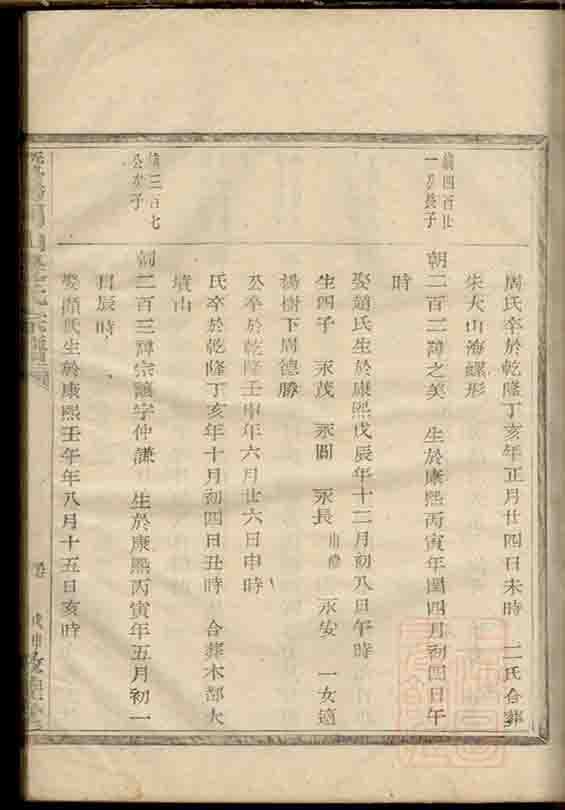 周氏卒於乾隆丁亥年正月廿四日未時 二氏合葬
朱大山海螺形
續四百廿
一公長子
朝二百二諱之美 生於康熙丙寅年閏四月初四日午
時
娶趙氏生於康熙戊辰年十二月初八日午時
生四子 永茂 永閏 永長 出繼 永安 一女適
楊樹下周德勝
公卒於乾隆壬申年六月廿六日申時
氏卒於乾隆丁亥年十月初四日丑時 合葬木部大
墳山
續三百七
公 子
朝二百三諱宗讓字仲謙 生於康熙丙寅年五月初一
日辰時
娶顏氏生於康熙壬午年八月十五日亥時